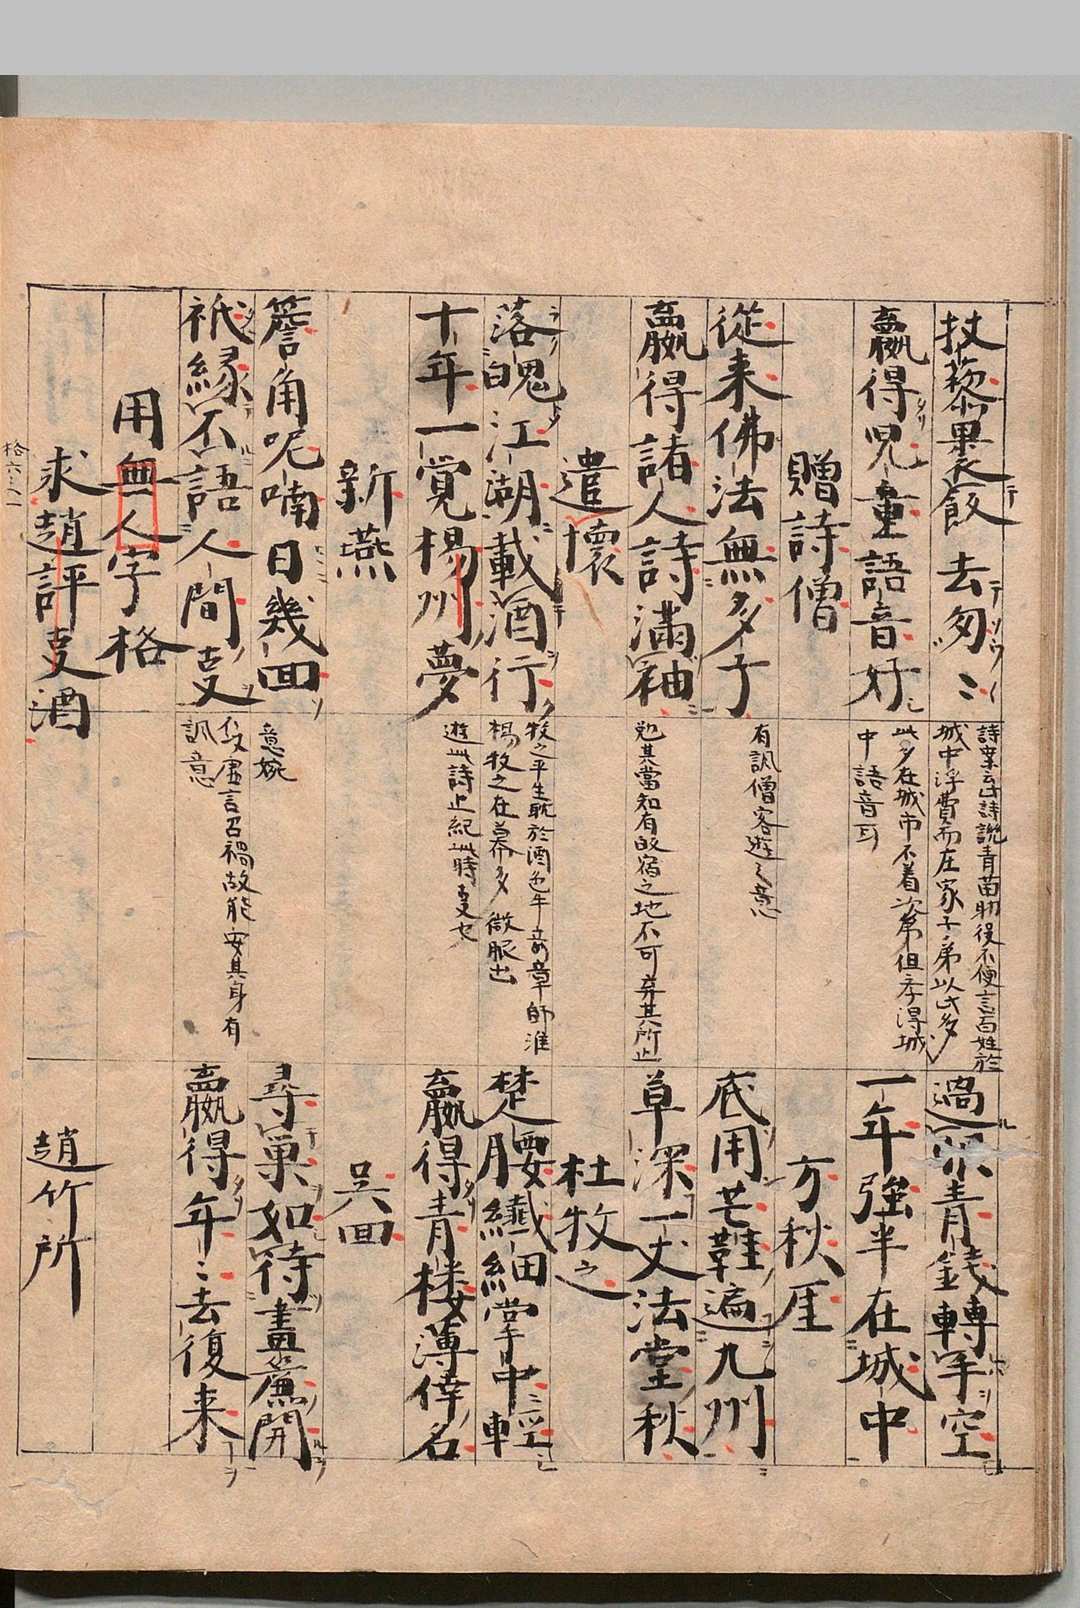 扙藜裹飯去匆〻
過眼青錢轉手空
詩案云此詩說青苗助役不便言百姓於
城中浮費而庄家子弟以此多
贏得兒童語音好
一年強半在城中
此多在城市不着次第但孛得城
中語音耳
贈詩僧
方秋厓
從来佛法無多子
底用芒鞋遍九州
有諷僧客遊之意
贏得諸人詩滿袖
草深一丈法堂秋
勉其當知有的宿之地不可弃其所止
遣懷
杜牧之
落魄江湖載酒行
楚腰纎細掌中輕
牧之平生耽於酒色牛竒章師淮
楊牧之在幕多微服出
十年一覚楊州夢
贏得青楼薄倖名
遊此詩上紀此時㕝也
新燕
吳回
簷角呢喃日幾回
尋巢如待畫簾開
意婉
祇縁不語人間㕝
贏得年〻去復来
從虛言召禍故能安其身有
諷意
用無人字格
求趙評㕝酒
趙竹所
格六之一